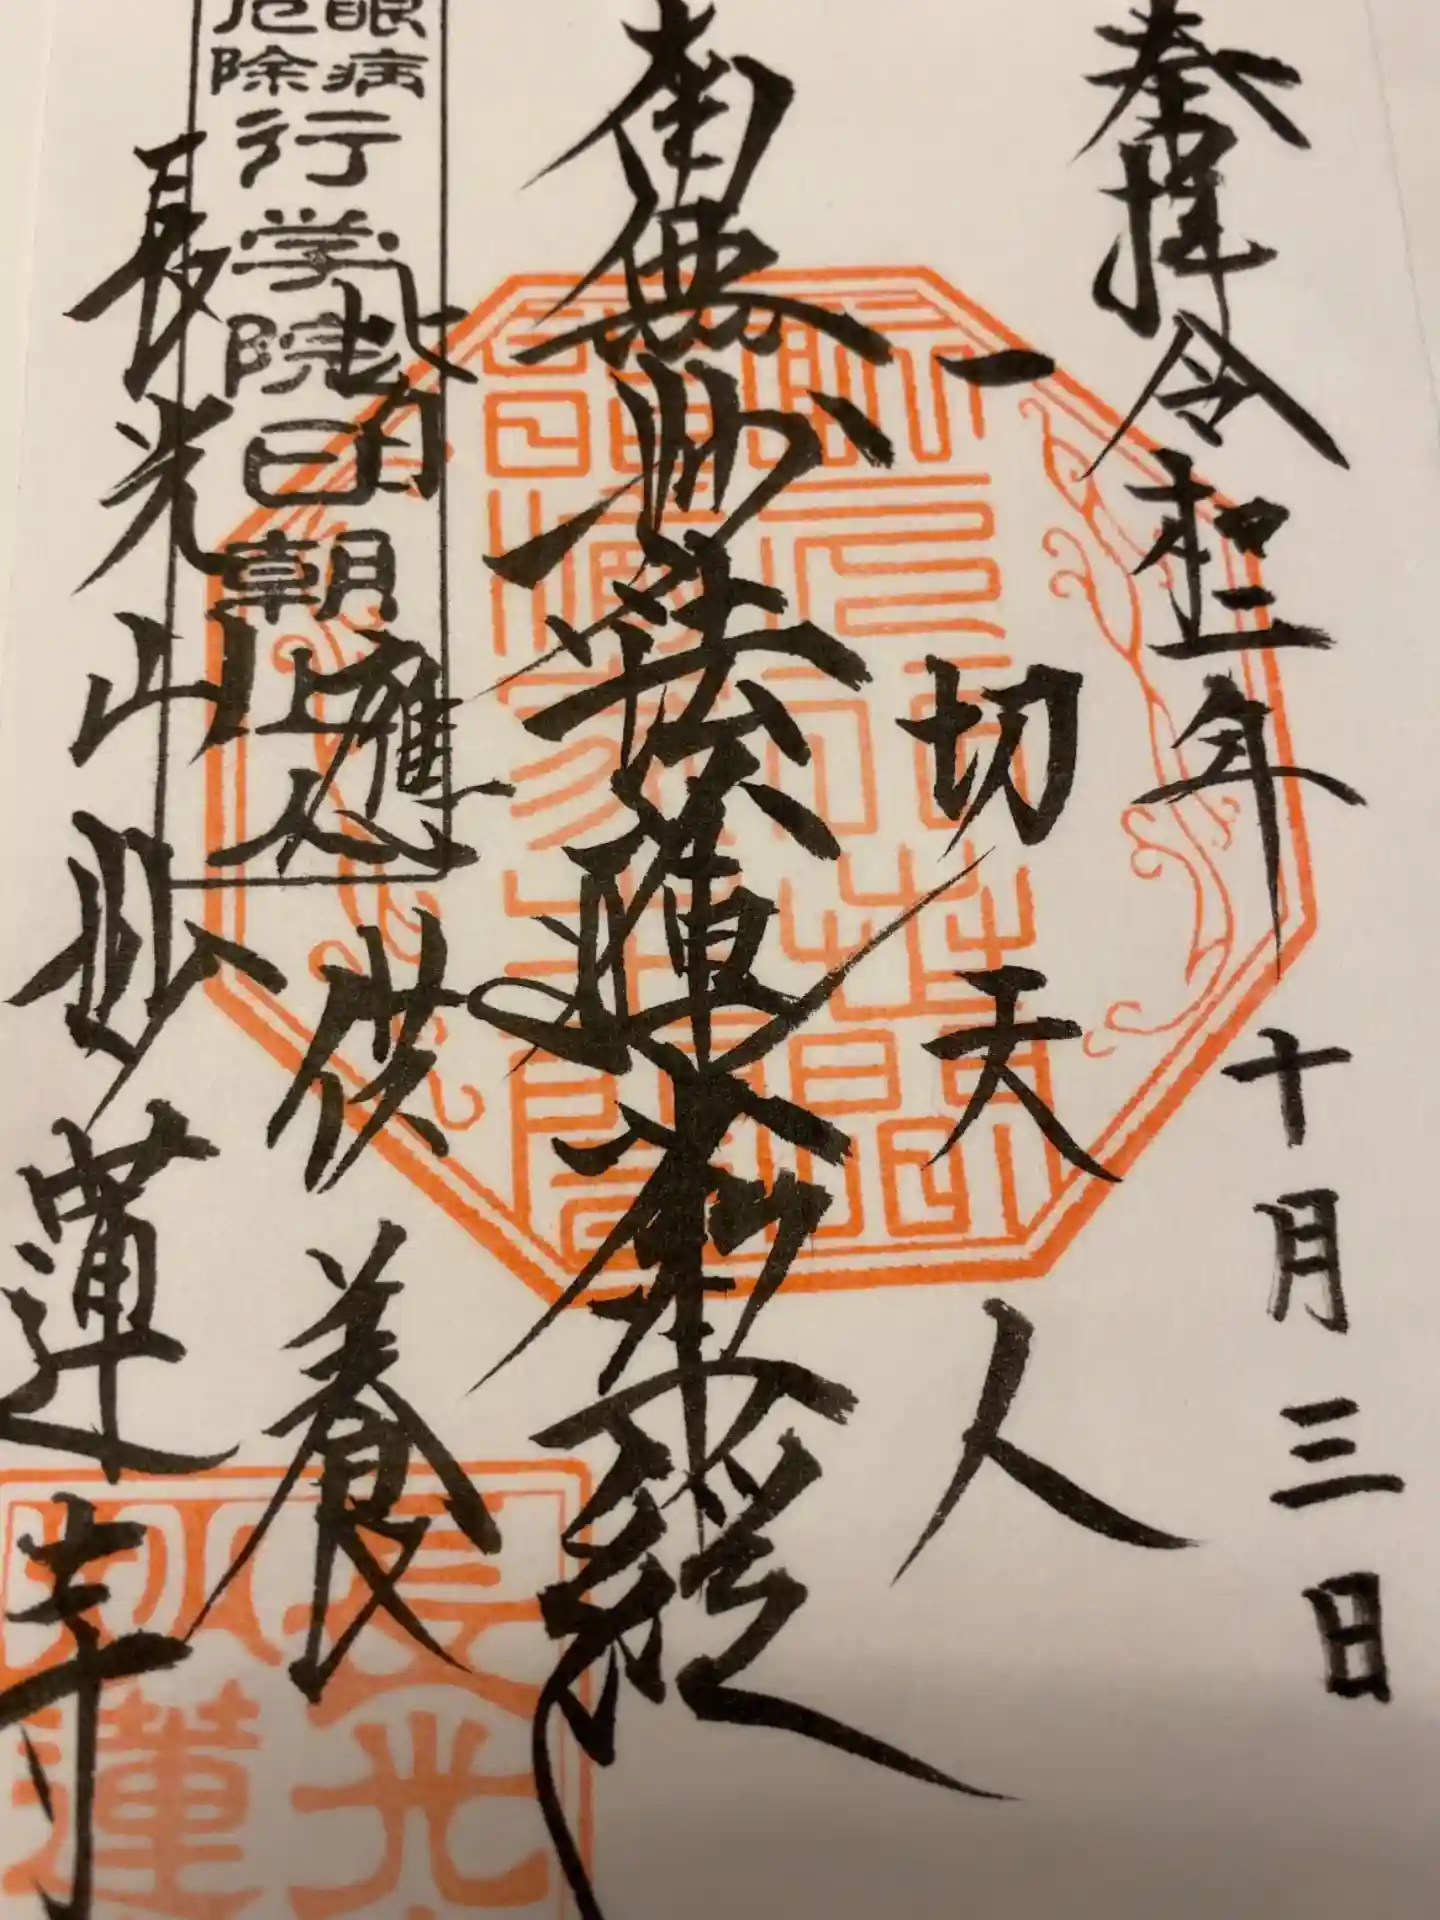 奉拝 令和二年 十月三日
一切天人
南無妙法蓮華経
皆應供養
眼病
厄除
行学院日朝上人
長光山妙蓮寺
長光
妙蓮